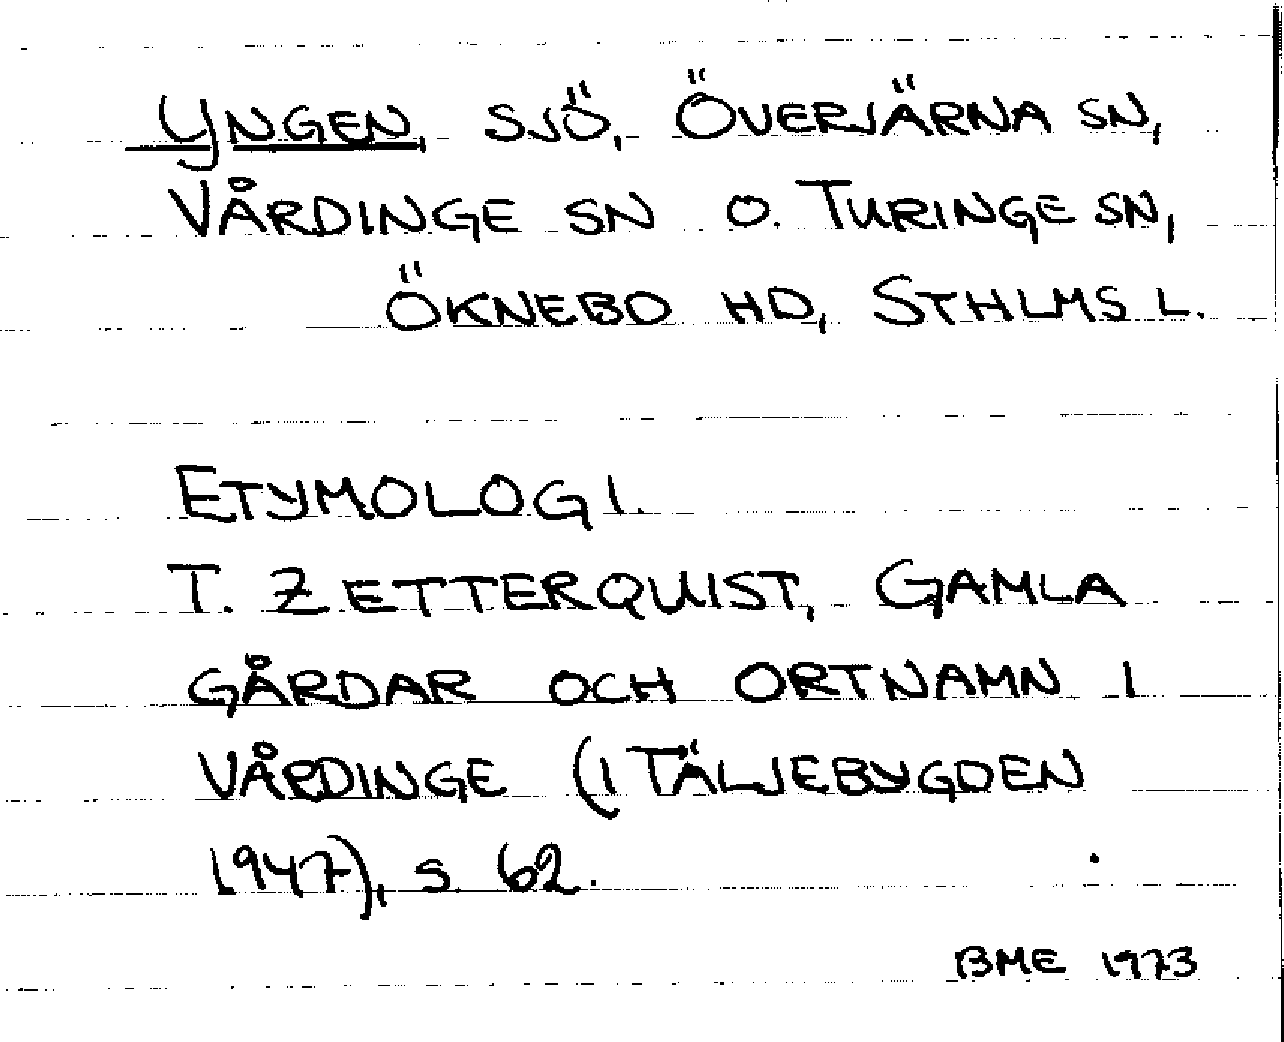 YNGEN, SJÖ, ÖVERJÄRNA SN,
VÅRDINGE SN O. TURINGE SN,
ÖKNEBO HD, STHLMS L.
ETYMOLOGI.
T. ZETTERQUIST, GAMLA
GÅRDAR OCH ORTNAMN I
VÅRDINGE (I TÄLJEBYGDEN
1947), S. 62.
BME 1973